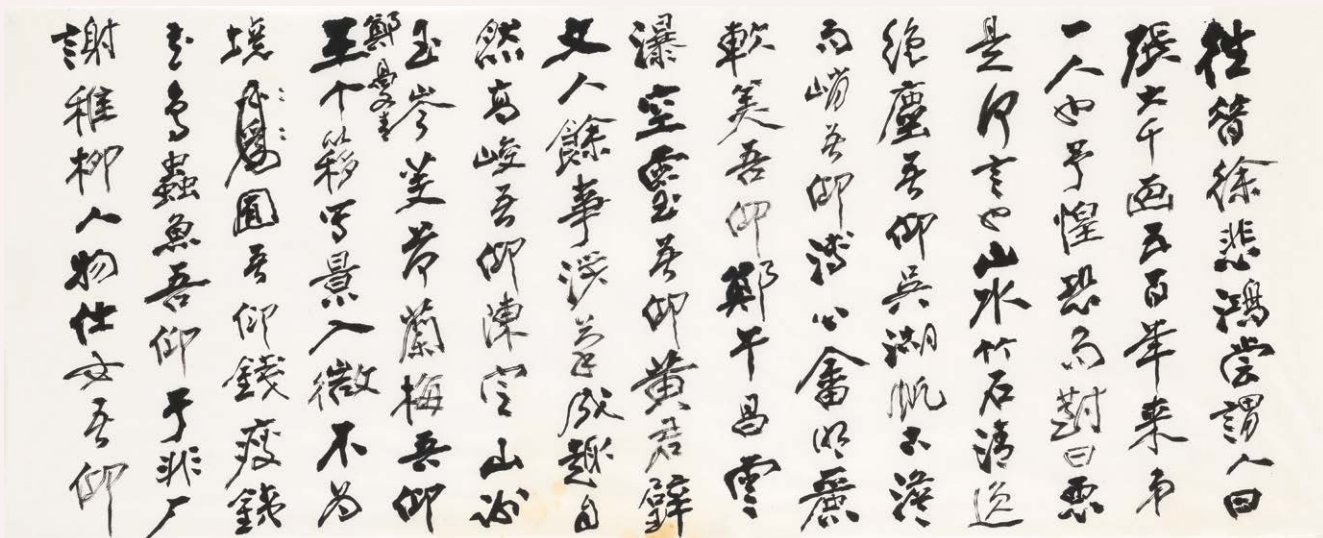 往昔徐悲鴻嘗謂人曰
張大千画五百年来第
一人也予惶恐而對曰惡
是何言也山水竹石清逸
絕塵吾仰吳湖帆古
而峭吾仰溥心畬明麗
軟美吾仰鄭午昌雲
瀑空靈吾仰黃君璧
文人餘事筆成趣自
然高峻吾仰陳定山谢
玉岑芰荷蘭梅吾仰
鄭曼青
王个簃写景入微不为
境囿吾仰錢瘦鐵
花鸟蟲魚吾仰于非厂
謝稚柳人物仕女吾仰